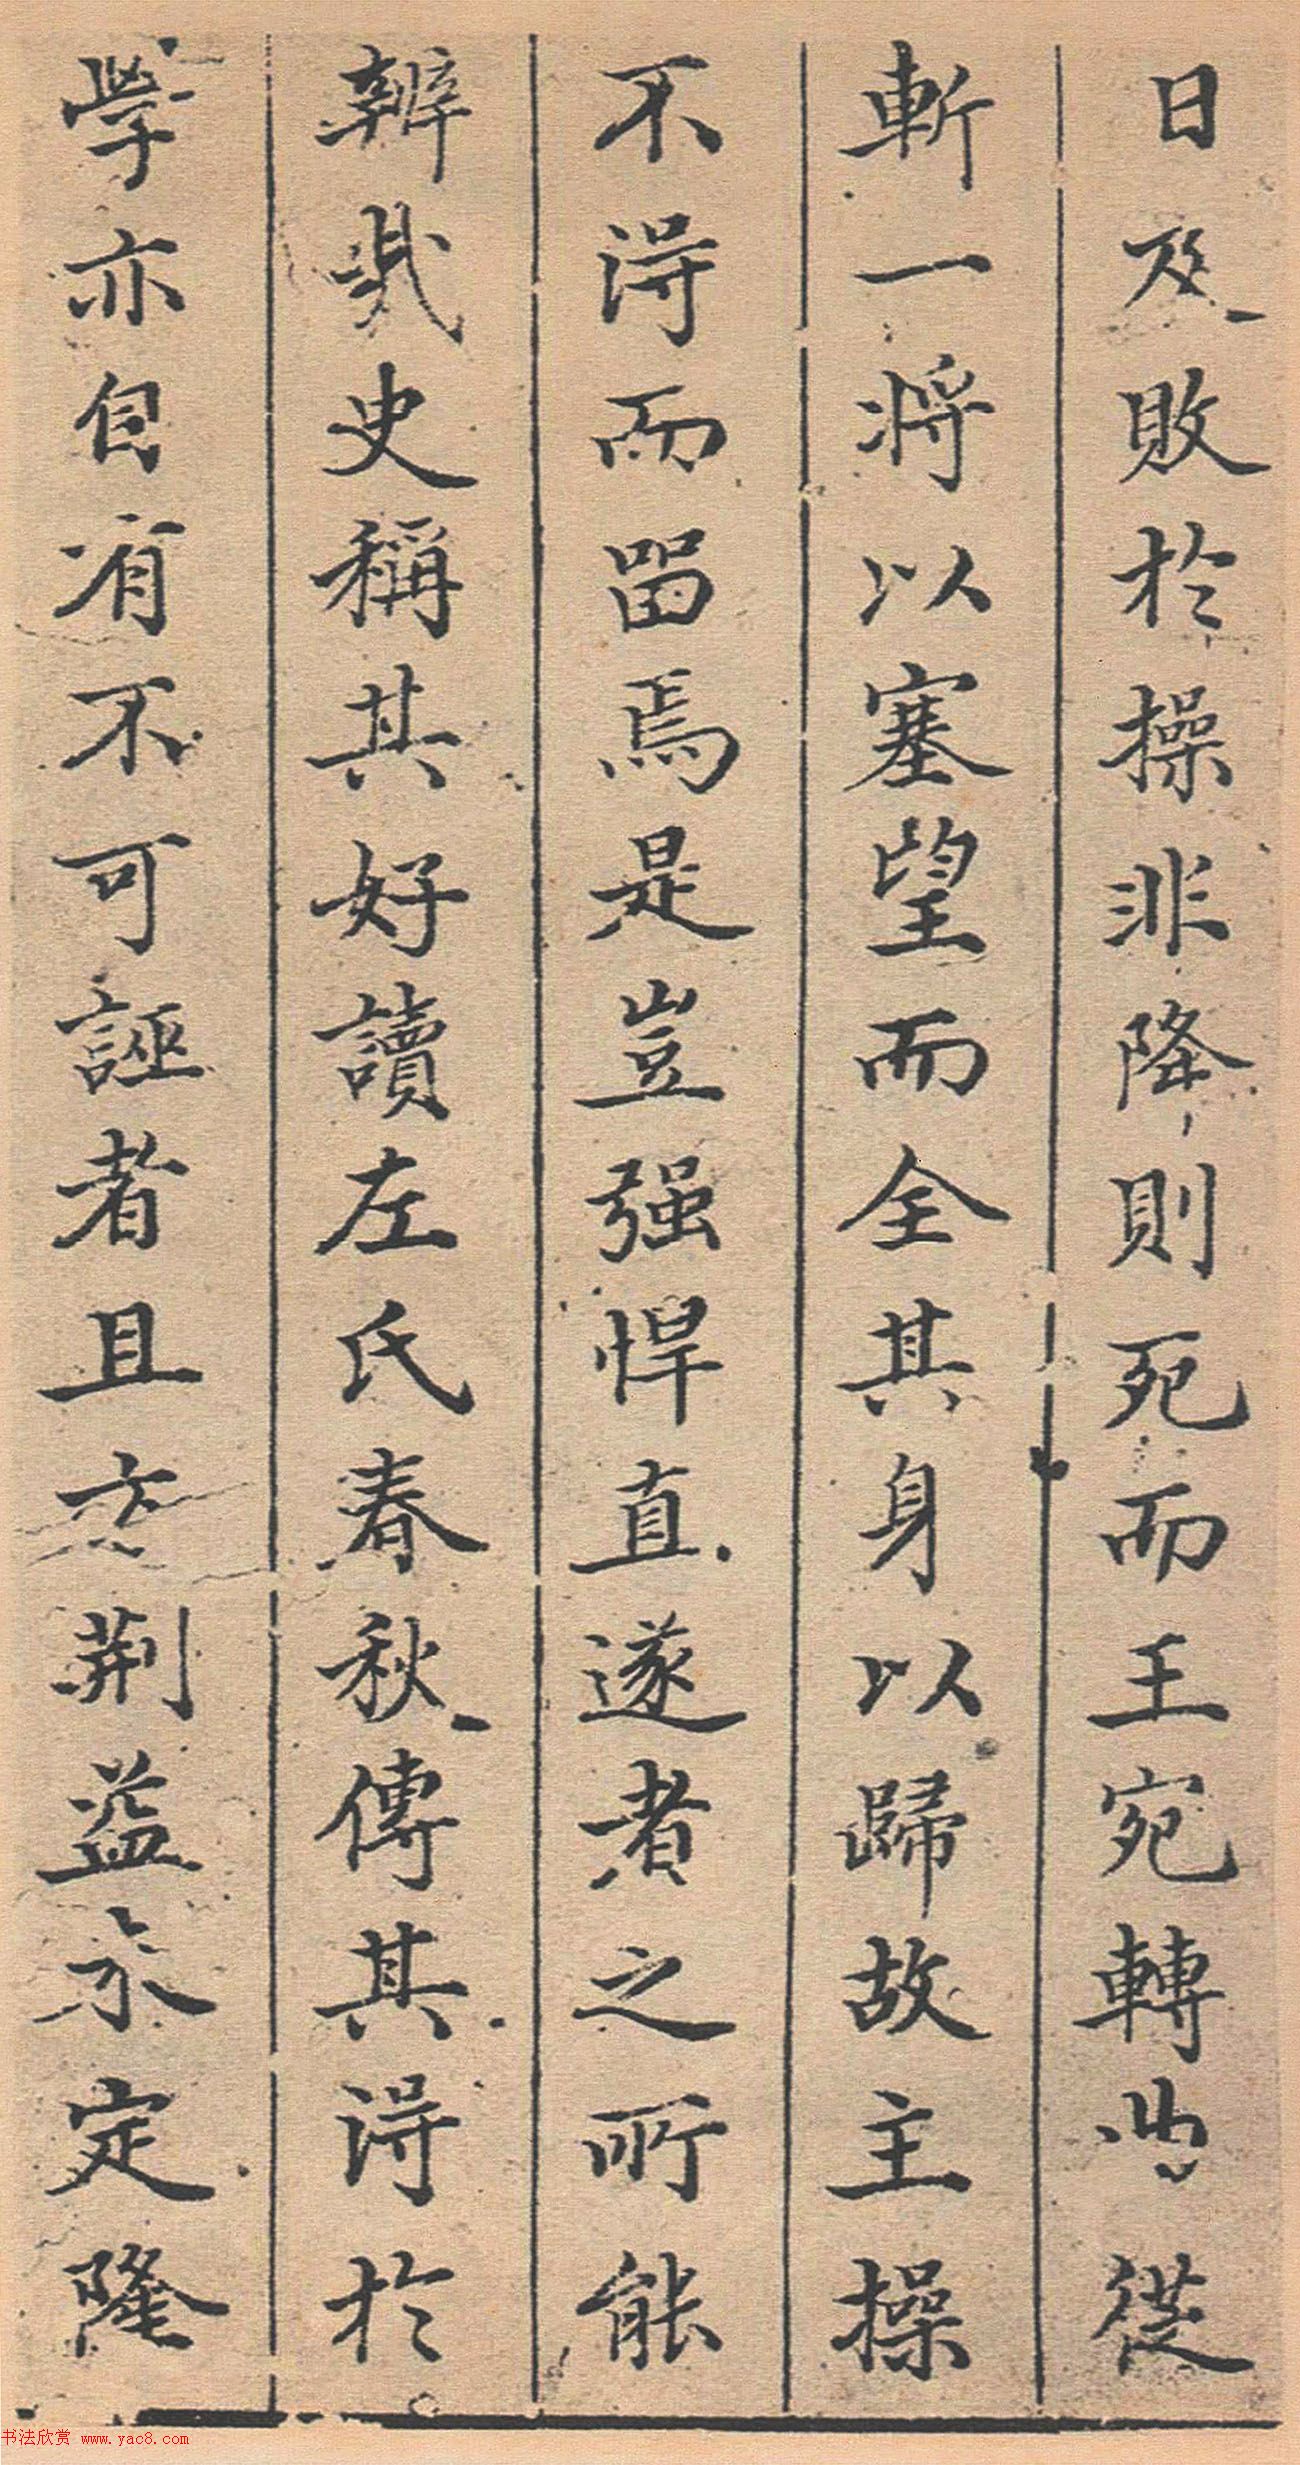 日及敗於操非降則死而王宛轉曲從
斬一將以塞望而全其身以歸故主操
不得而留焉是豈强悍直遂者之所能
辨哉史稱其好讀左氏春秋傳其得於
學亦自有不可誣者且夫荆益未定隆
书法欣赏 www.yac8.com